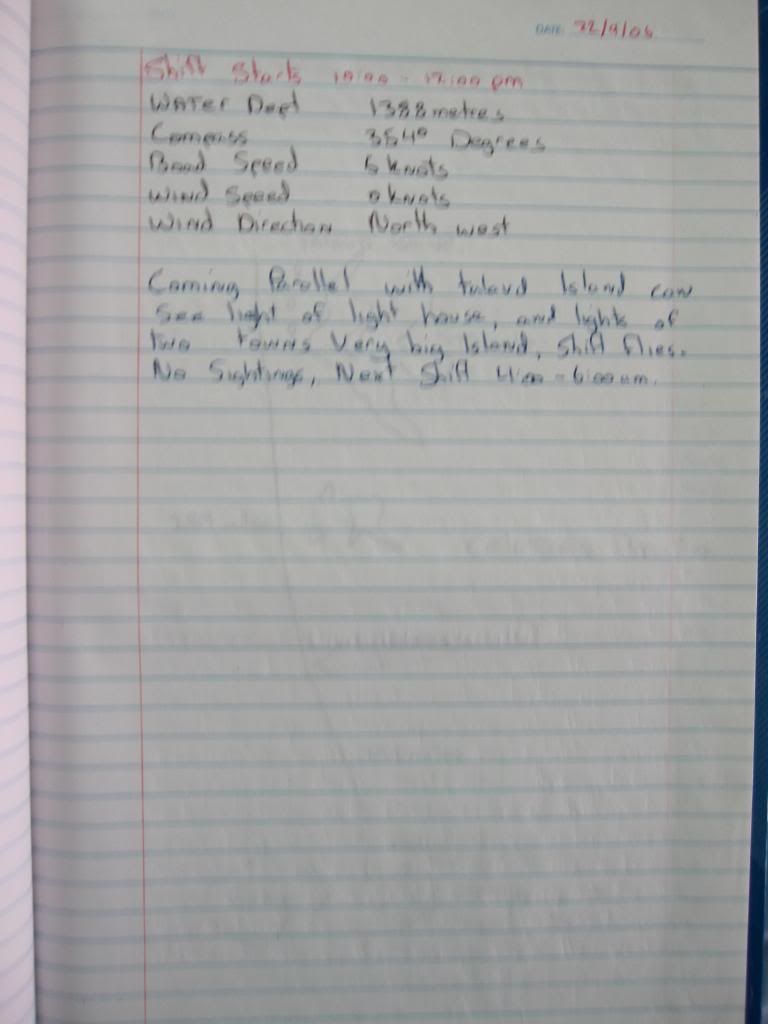 DATE: 22/9/06
Shift Starts 10:00 - 12:00 pm
WATer Dept 1388 metres
Compass 354° Degrees
Boad Speed 5 knots
Wind Speed 0 knots
Wind Direction North west
Coming Parallel with Island can
See light of light house, and lights of
two towns Very big Island, Shift flies.
No Sightings, Next Shift 4:00 - 6:00 am.